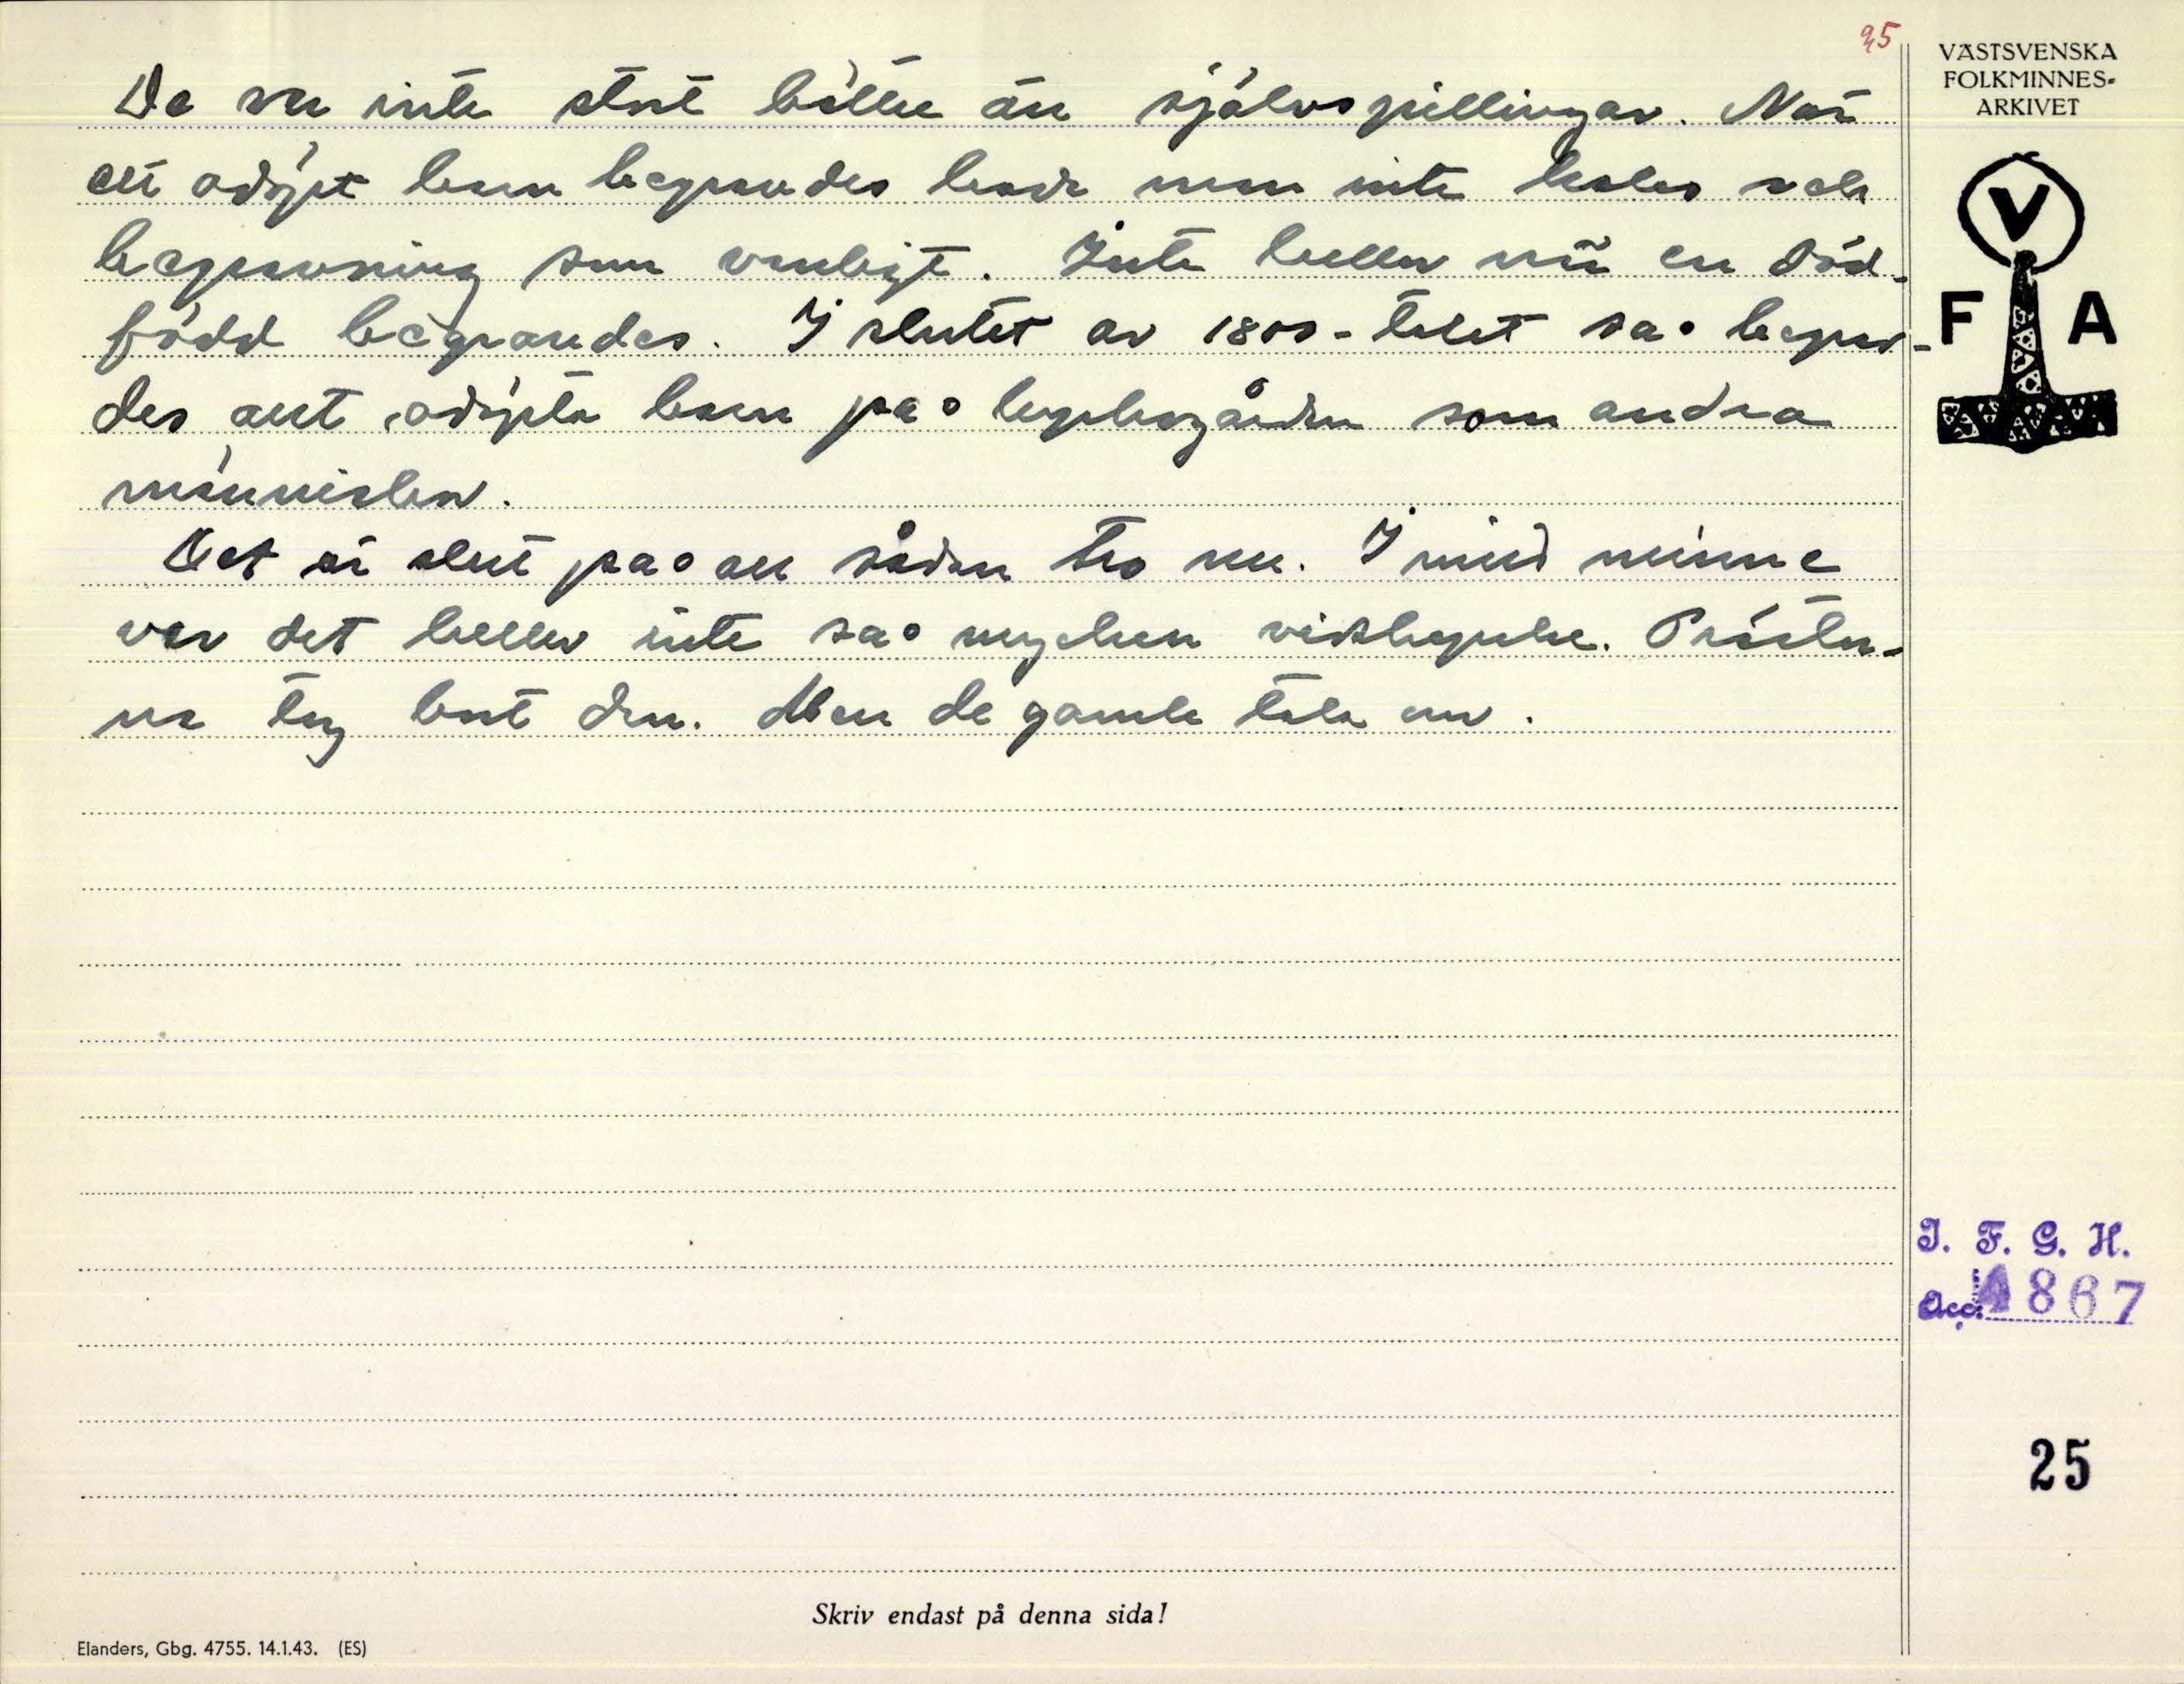 25
VÄSTSVENSKA
FOLKMINNES-
ARKIVET
De va inte stort bättre än självspillingar. När
ett odöpt barn begravdes hade man inte kalas och
begravning som vanligt. Inte heller när en död-
född begravdes. I slutet av 1800-talet så begrav-
des allt odöpta barn på kyrkogården som andra
människor.
Det är slut på all sådan tro nu. I mitt minne
var det heller inte så mycken vidskepelse. Präster-
na tog bort den. Men de gamle tala om.
V
F A
I. F. G. H.
Acc. 4867
25
Skriv endast på denna sida!
Elanders, Gbg. 4755. 14.1.43. (ES)